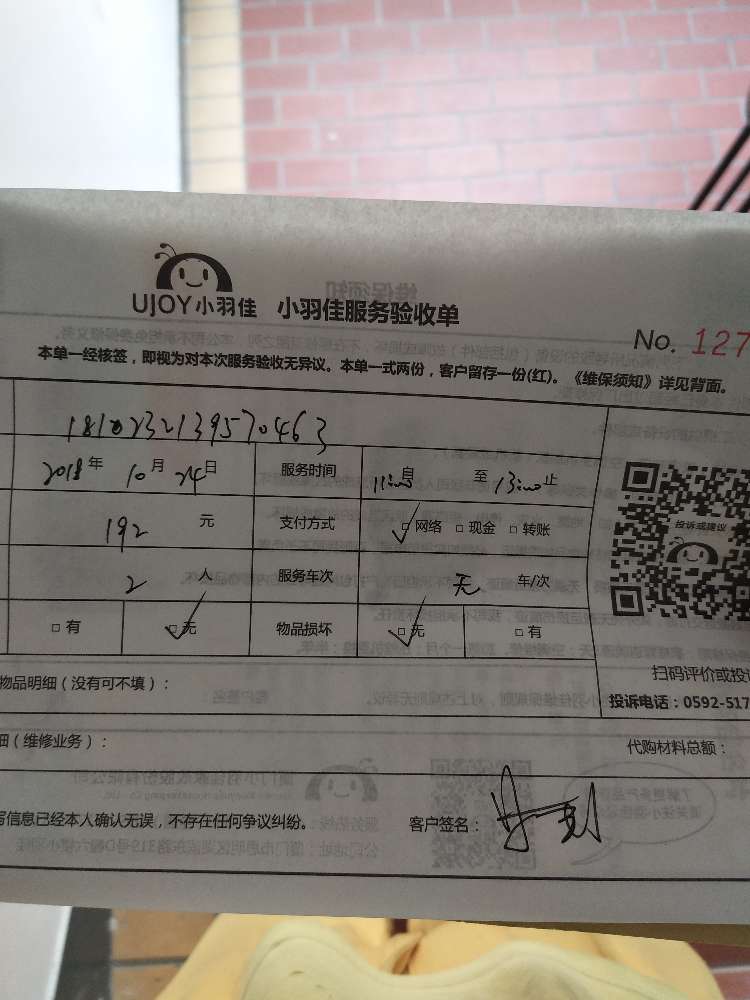 UJOY小羽佳 小羽佳服务验收单
No. 127
本单一经核签，即视为对本次服务验收无异议。本单一式两份，客户留存一份(红)。《维保须知》详见背面。
1810232139570463
2018年 10月 24日 服务时间 11:00 起 至 13:00 止
192 元 支付方式 □网络 □现金 □转账
投诉或建议
2 人 服务车次 无 车/次
□有 □无 物品损坏 □无 □有
扫码评价或投
物品明细（没有可不填）：
投诉电话：0592-517
细（维修业务）： 代购材料总额：
写信息已经本人确认无误，不存在任何争议纠纷。 客户签名：